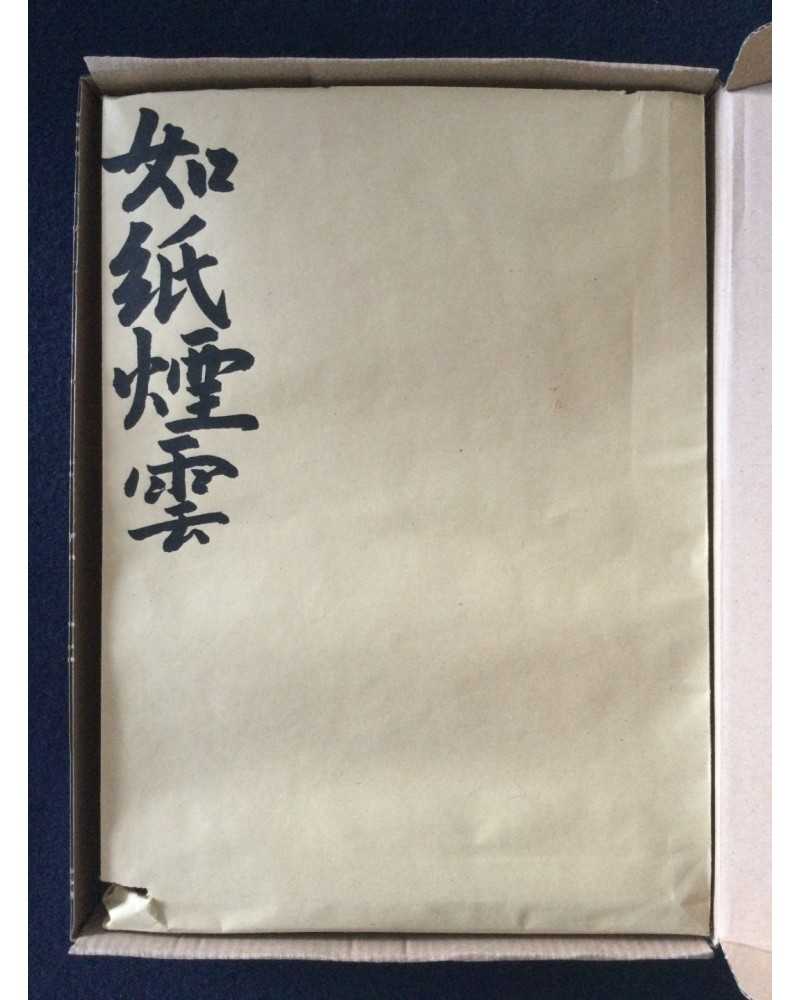 如紙煙雲